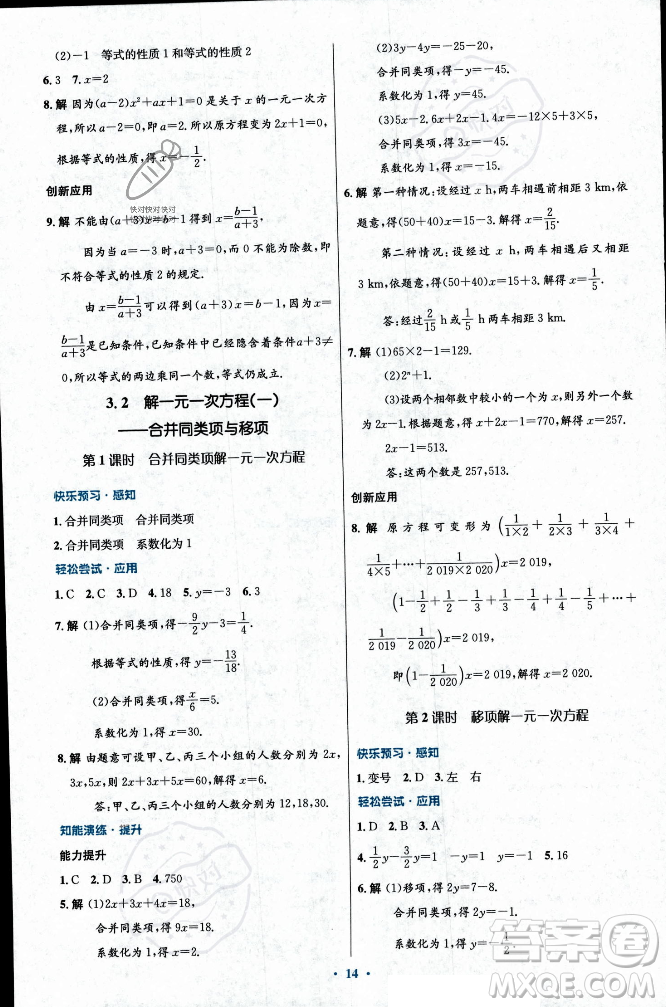 (2)－1　等式的性质 1 和等式的性质 2
6.3　7.x＝2
8.解　因为(a－2)x²＋ax＋1＝0 是关于 x 的一元一次方
程,所以 a－2＝0,即 a＝2.所以原方程为 2x＋1＝0,
根据等式的性质,得 x＝－1/2.
创新应用
9.解　不能由(a＋3)x＝b－1 得到 x＝(b－1)/(a＋3).
因为当 a＝－3 时,a＋3＝0 不能为除数,即
不符合等式的性质 2 的规定.
由 x＝(b－1)/(a＋3)可以得到(a＋3)x＝b－1,
x＝(b－1)/(a＋3)是已知条件,已知条件中已包含 a＋3≠0,
所以等式的两边乘同一个数,等式仍成立.
3.2　解一元一次方程(一)
——合并同类项与移项
第 1 课时　合并同类项解一元一次方程
快乐预习·感知
1.合并同类项　合并同类项
2.合并同类项　系数化为 1
轻松尝试·应用
1.C　2.C　3.D　4.18　5.y＝－3　6.3
7.解　(1)合并同类项,得－9/2y－3＝1/4,
根据等式的性质,得 y＝－13/18.
(2)合并同类项,得 x/6＝5.
系数化为 1,得 x＝30.
8.解　由题意可设甲、乙、丙三个小组的人数分别为 2x,
3x,5x,则 2x＋3x＋5x＝60,解得 x＝6.
答:甲、乙、丙三个小组的人数分别为 12,18,30.
知能演练·提升
能力提升
1.C　2.D　3.B　4.750
5.解　(1)2x＋3x＋4x＝18,
合并同类项,得 9x＝18.
系数化为 1,得 x＝2.
(2)3y－4y＝－25－20,
合并同类项,得－y＝－45.
系数化为 1,得 y＝45.
(3)2.5x－2.6x＋2x－1.6x＝15×5＋3×5,
合并同类项,得 0.3x＝90.
系数化为 1,得 x＝300.
6.解　第一种情况:设经过 x h,两车相遇前相距 3 km,
依题意,得(50＋40)x＝15－3,解得 x＝2/15.
第二种情况:设经过 x h,两车相遇后又相距
3 km,依题意,得(50＋40)x＝15＋3,解得 x＝1/5.
答:经过2/15 h 或1/5 h 两车相距 3 km.
7.解　(1)65×2－1＝129.
(2)2ⁿ＋1.
(3)设两个相邻数中较小的一个为 x,则较大的为
2x－1,根据题意,得 x＋2x－1＝770,解得 x＝257,
2x－1＝513.
答:这两个数是 257,513.
创新应用
8.解　原方程可变形为(1/(1×2)＋1/(2×3)＋1/(3×4)＋
1/(4×5)＋…＋1/(2 019×2 020))x＝2 019,
(1－1/2＋1/2－1/3＋1/3－1/4＋1/4－1/5＋…＋
1/2 019－1/2 020)x＝2 019,
即(1－1/2 020)x＝2 019,解得 x＝2 020.
第 2 课时　移项解一元一次方程
快乐预习·感知
1.变号　2.D　3.左　右
轻松尝试·应用
1.D　2.B　3.A
4.1/2y－3/2y＝1　－y＝1　y＝－1　5.16
6.解　(1)移项,得 2y＝7－8.
合并同类项,得 2y＝－1.
系数化为 1,得 y＝－1/2.
14
快对快对快对
快对
答案圈
MXQE.COM